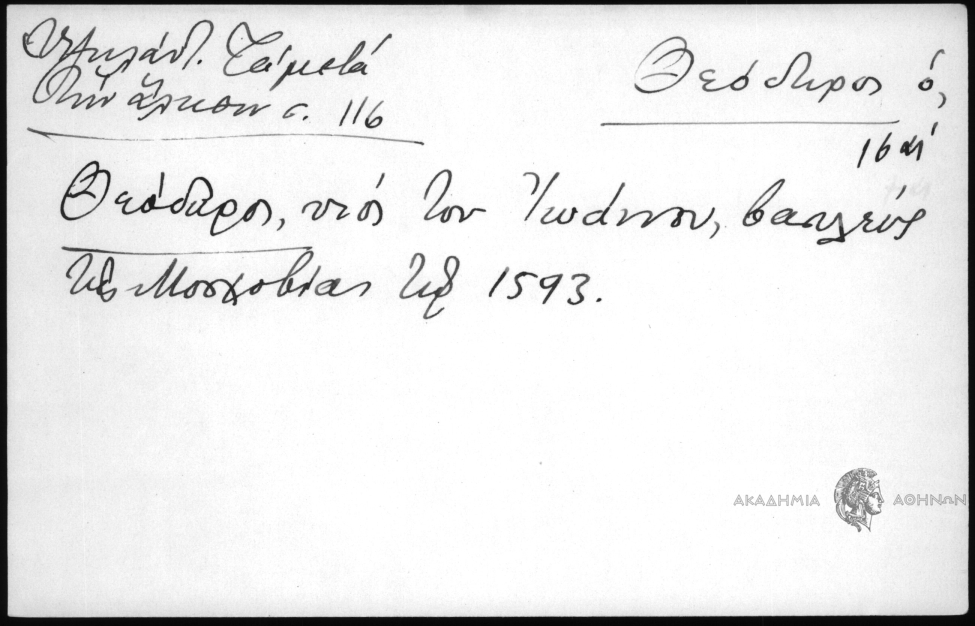 Ὑψηλάντ. Τὰ μετὰ
τὴν ἅλωσιν σ. 116
Θεόδωρος ὁ,
16 αἰ
Θεόδωρος, υἱὸς τοῦ Ἰωάννου, βασιλεὺς
τῆς Μοσχοβίας τῷ 1593.
ΑΚΑΔΗΜΙΑ ΑΘΗΝΩΝ